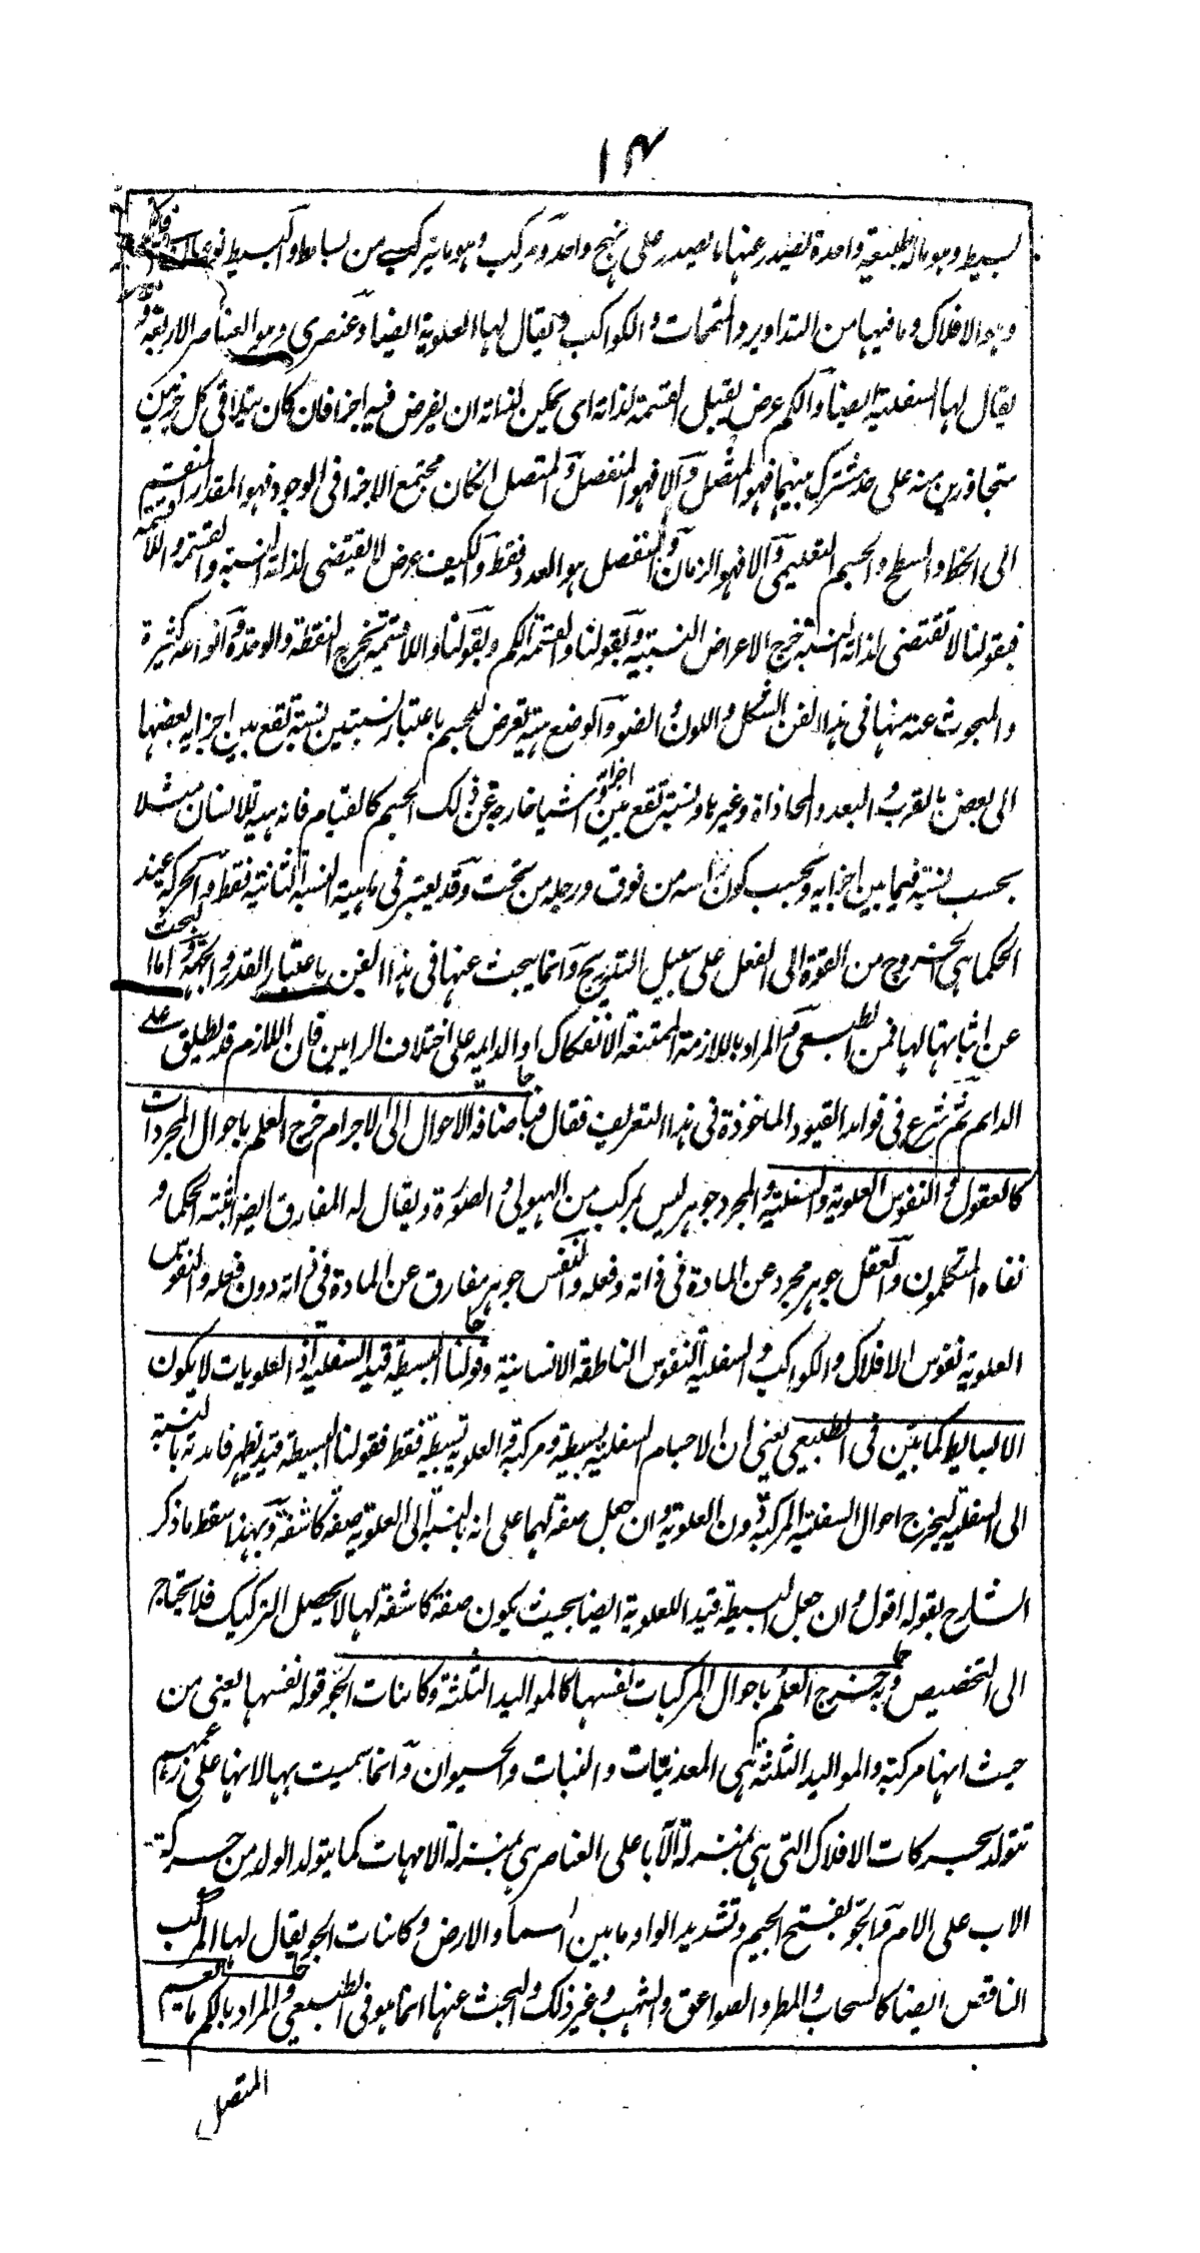 ١٤
بسيط وهو ماله طبيعة واحدة تصدر عنها ما يصدر على نهج واحد ومركب وهو ما يتركب من بسائط والبسيط نوعان فلكى
وهو الافلاك وما فيها من التداوير والمتممات والكواكب ويقال لها العلوية ايضا وعنصرى وهو العناصر الاربعة و
يقال لها السفلية ايضا والكم عرض يقبل القسمة لذاته اى يمكن لذاته ان يفرض فيه اجزا فان كان يتلاقى كل جزئين
متجاورين منه على حد مشترك بينهما فهو المتصل والا فهو المنفصل والمتصل ان كان مجتمع الاجزا فى الوجود فهو المقدار المنقسم
الى الخط والسطح والجسم التعليمى والا فهو الزمان والمنفصل هو العدد فقط والكيف عرض لا يقتضى لذاته النسبة والقسمة واللاقسمة
فبقولنا لا تقتضى لذاته النسبة خرج الاعراض النسبية وبقولنا والقسمة الكم وبقولنا واللاقسمة تخرج النقطة والوحدة وانواعه كثيرة
والمبحوث عنه منها فى هذا الفن الشكل واللون والضو والوضع هيئة تعرض للجسم باعتبار نسبتين نسبة تقع بين اجزايه بعضها
الى بعض بالقرب والبعد والمحاذاة وغيرها ونسبة تقع بين اجزائه واشيا خارجة عن ذلك الجسم كالقيام فانه هيئة للانسان مثلا
بحسب نسبة فيما بين اجزايه وبحسب كون راسه من فوق ورجله من تحت وقد يعتبر فى ماهية النسبة الثانية فقط والحركة عند
الحكما هى الخروج من القوة الى الفعل على سبيل التدريج وانما يبحث عنها فى هذا الفن باعتبار القدر والجهة واما البحث
عن اثباتها لها فمن الطبيعى والمراد باللازمة الممتنعة الانفكاك او الدايمه على اختلاف الرايين فان اللازم قد يطلق على
الدايم ثم شرع فى فوايد القيود الماخوذة فى هذا التعريف فقال فباضافة الاحوال الى الاجرام خرج العلم باحوال المجردات
كالعقول والنفوس العلوية والسفلية والمجرد جوهر ليس بمركب من الهيولى والصورة ويقال له المفارق ايضا اثبته الحكما و
نفاه المتكلمون والعقل جوهر مجرد عن المادة فى ذاته وفعله والنفس جوهر مفارق عن المادة فى ذاته دون فعله والنفوس
العلوية نفوس الافلاك والكواكب والسفلية النفوس الناطقة الانسانية وقولنا البسيطة قيد السفلية اذ العلويات لا يكون
الا بسايط كما بين فى الطبيعى يعنى ان الاجسام السفلية بسيطة ومركبة والعلوية بسيطة فقط فقولنا البسيطة قيد يظهر فايدته بالنسبة
الى السفلية ليخرج احوال السفلية المركبة دون العلوية وان جعل صفة لهما على انه بالنسبة الى العلوية صفة كاشفة وبهذا سقط ما ذكر
الشارح بقوله اقول وان جعل البسيطة قيد اللعلوية ايضا بحيث يكون صفة كاشفة لها لا يحصل التركيك فلا يحتاج
الى التخصيص وبه خرج العلم باحوال المركبات نفسها كالمواليد الثلثة وكاينات الجو قوله نفسها يعنى من
حيث انها مركبة والمواليد الثلثة هى المعدنيات والنبات والحيوان وانما سميت بها لانها على زعمهم
تتولد بحركات الافلاك التى هى بمنزلة الآبا على العناصر هى بمنزلة الامهات كما يتولد الولد من حركة
الاب على الام والجو بفتح الجيم وتشديد الواو ما بين السما والارض وكاينات الجو يقال لها المركب
الناقص ايضا كالسحاب والمطر والصواعق والشهب وغير ذلك والبحث عنها انما هو فى الطبيعى والمراد بالكم ما يعم
المتصل